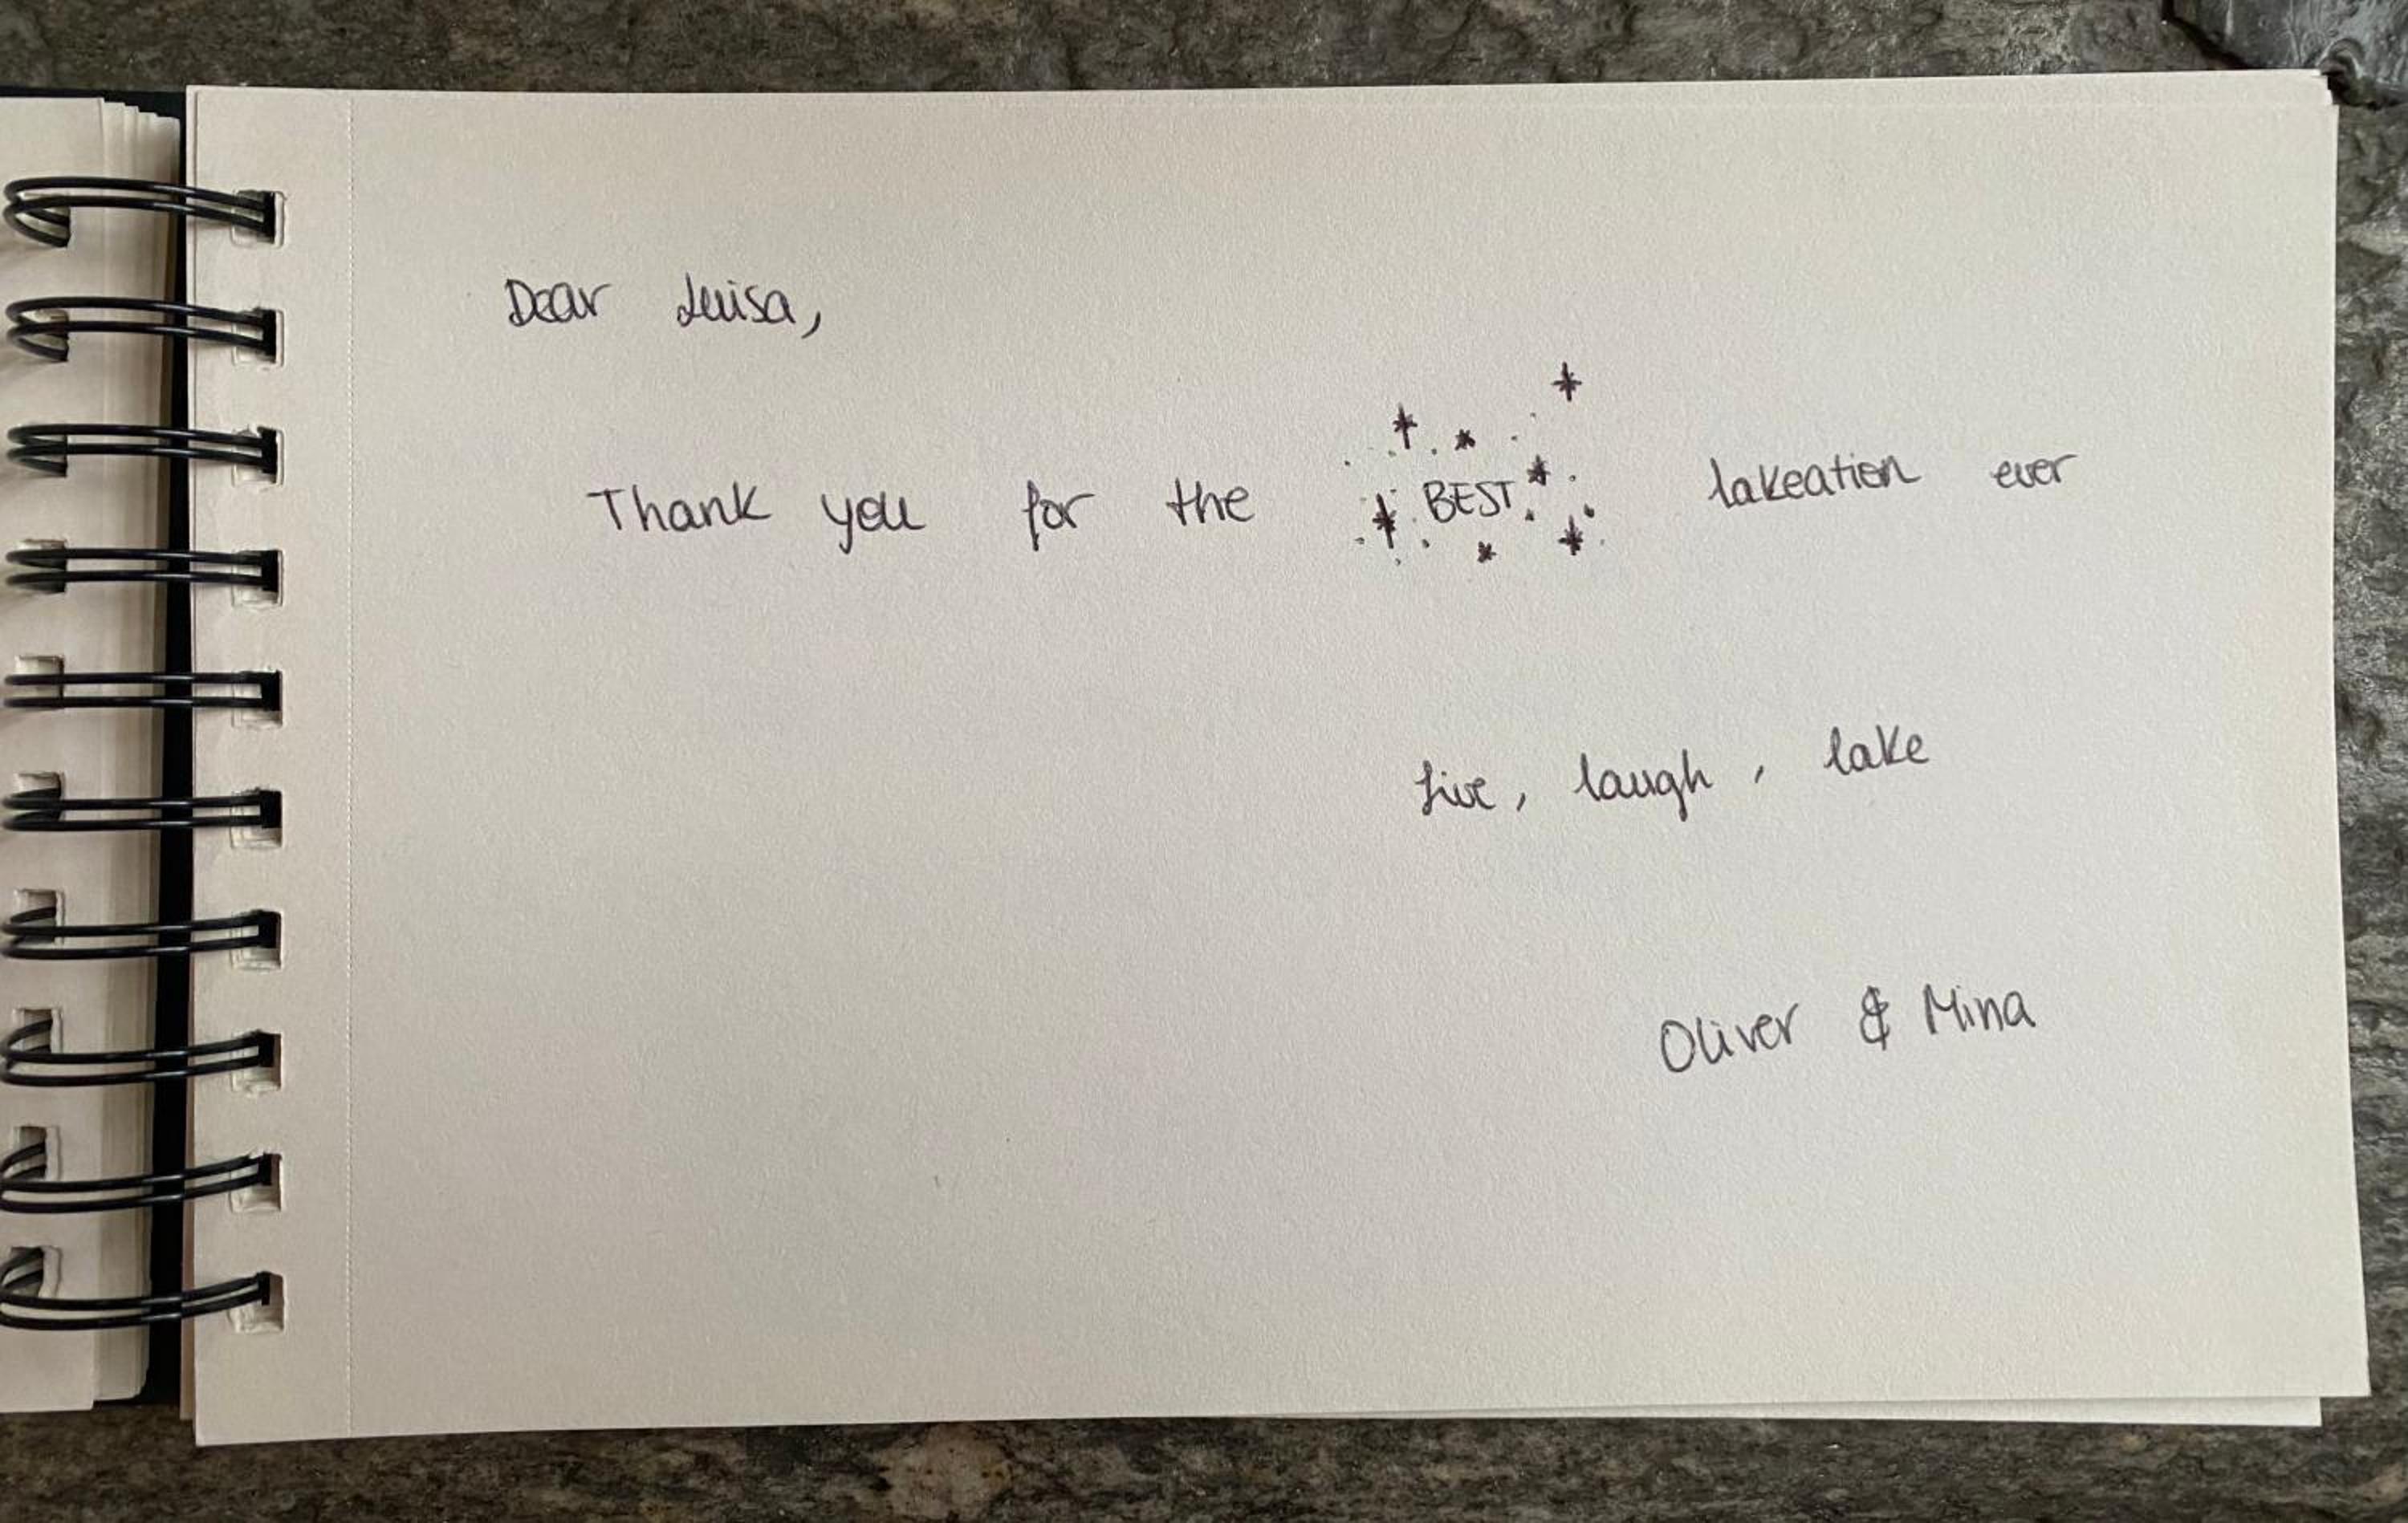 Dear Luisa,
Thank you for the BEST lakeation ever
Live, laugh, lake
Oliver & Mina